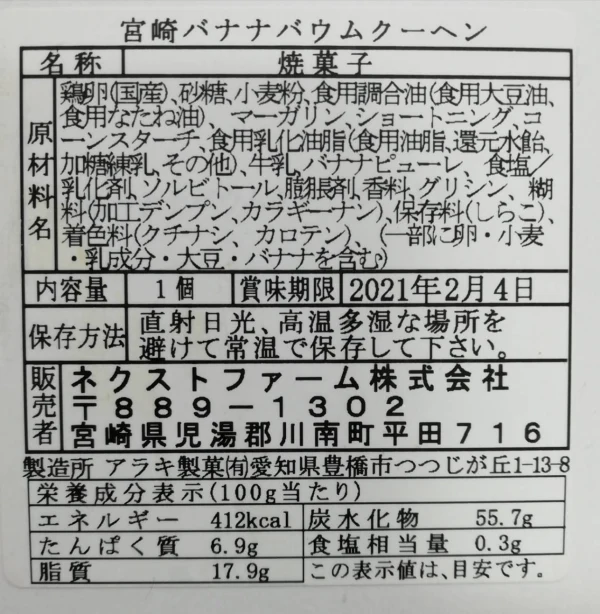 宮崎バナナバウムクーヘン
名称 焼菓子
原材料名
鶏卵(国産)、砂糖、小麦粉、食用調合油(食用大豆油、
食用なたね油)、マーガリン、ショートニング、コ
ーンスターチ、食用乳化油脂(食用油脂、還元水飴、
加糖練乳、その他)、牛乳、バナナピューレ、食塩/
乳化剤、ソルビトール、膨脹剤、香料、グリシン、糊
料(加工デンプン、カラギーナン)、保存料(しらこ)、
着色料(クチナシ、カロテン)、(一部に卵・小麦
・乳成分・大豆・バナナを含む)
内容量 1個 賞味期限 2021年2月4日
保存方法 直射日光、高温多湿な場所を
避けて常温で保存して下さい。
販売者 ネクストファーム株式会社
〒889-1302
宮崎県児湯郡川南町平田716
製造所 アラキ製菓㈲愛知県豊橋市つつじが丘1-13-8
栄養成分表示(100g当たり)
エネルギー 412kcal 炭水化物 55.7g
たんぱく質 6.9g 食塩相当量 0.3g
脂質 17.9g この表示値は、目安です。